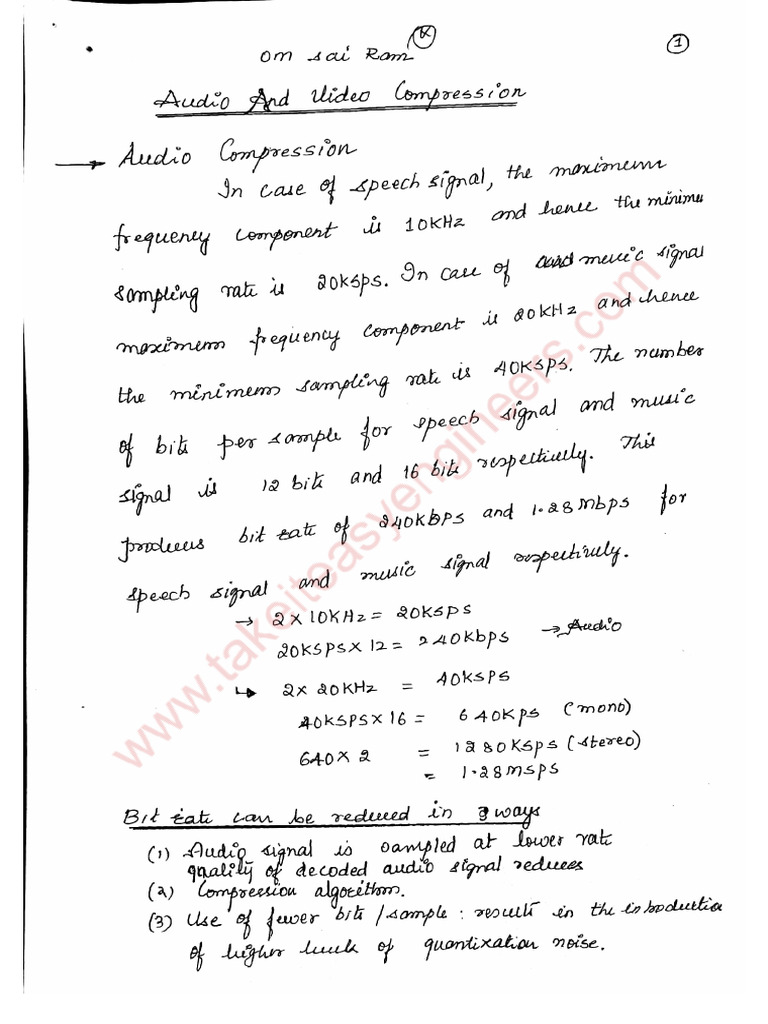 K
1
Om Sai Ram
Audio And Video Compression
→ Audio Compression
In case of speech signal, the maximum
frequency component is 10KHz and hence the minimum
sampling rate is 20Ksps. In case of music signal
maximum frequency component is 20KHz and hence
the minimum sampling rate is 40Ksps. The number
of bits per sample for speech signal and music
signal is 12 bits and 16 bits respectively. This
produces bit rate of 240Kbps and 1.28Mbps for
speech signal and music signal respectively.
→ 2 x 10KHz = 20KSPS
20KSPS x 12 = 240Kbps → Audio
↳ 2 x 20KHz = 40KSPS
40KSPS x 16 = 640Kps (mono)
640 x 2 = 1280Ksps (stereo)
= 1.28MSPS
Bit rate can be reduced in 3 ways
(1) Audio signal is sampled at lower rate
quality of decoded audio signal reduces
(2) Compression algorithm.
(3) Use of fewer bits/sample : results in the introduction
of higher levels of quantization noise.
www.takeiteasyengineers.com